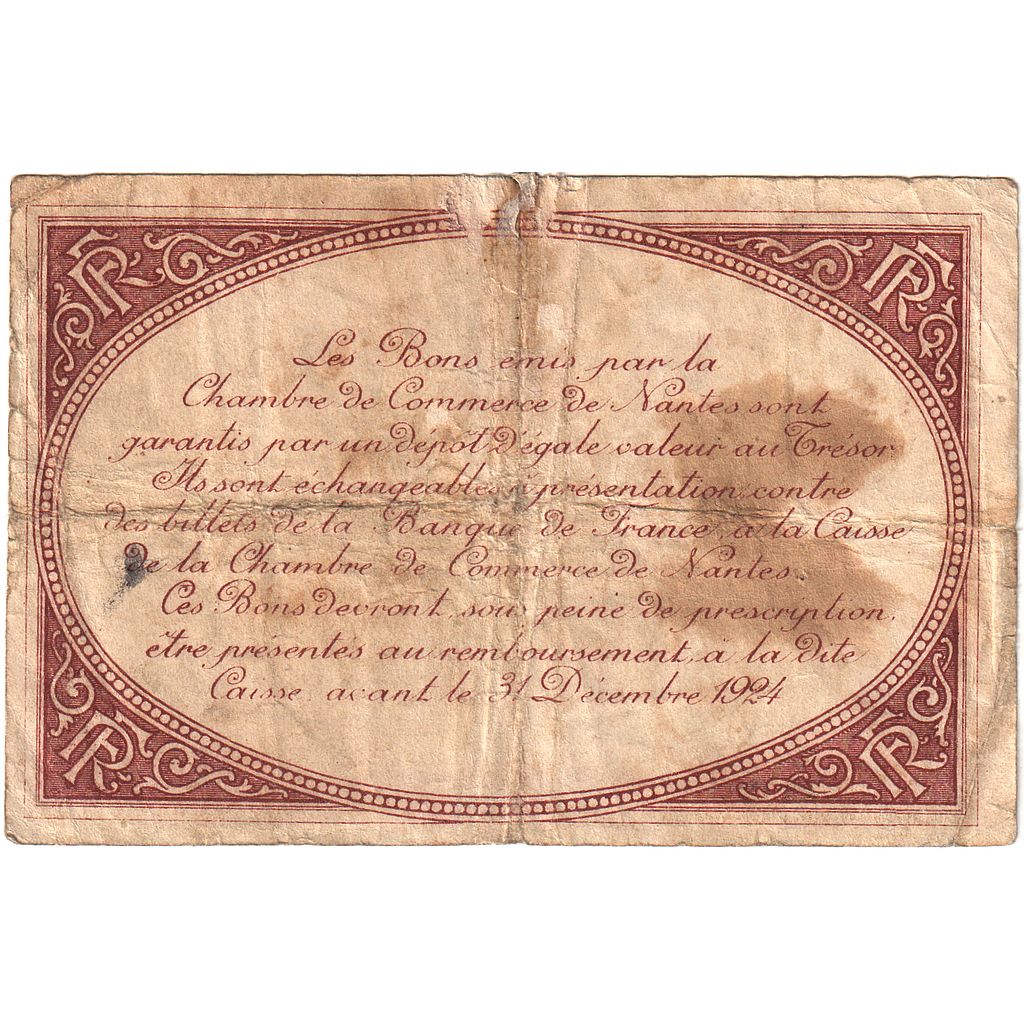 RF RF
Les Bons émis par la
Chambre de Commerce de Nantes sont
garantis par un dépôt d'égale valeur au Trésor
Ils sont échangeables à présentation, contre
des billets de la Banque de France, à la Caisse
de la Chambre de Commerce de Nantes.
Ces Bons devront, sous peine de prescription,
être présentés au remboursement, à la dite
Caisse, avant le 31 Décembre 1924
RF RF